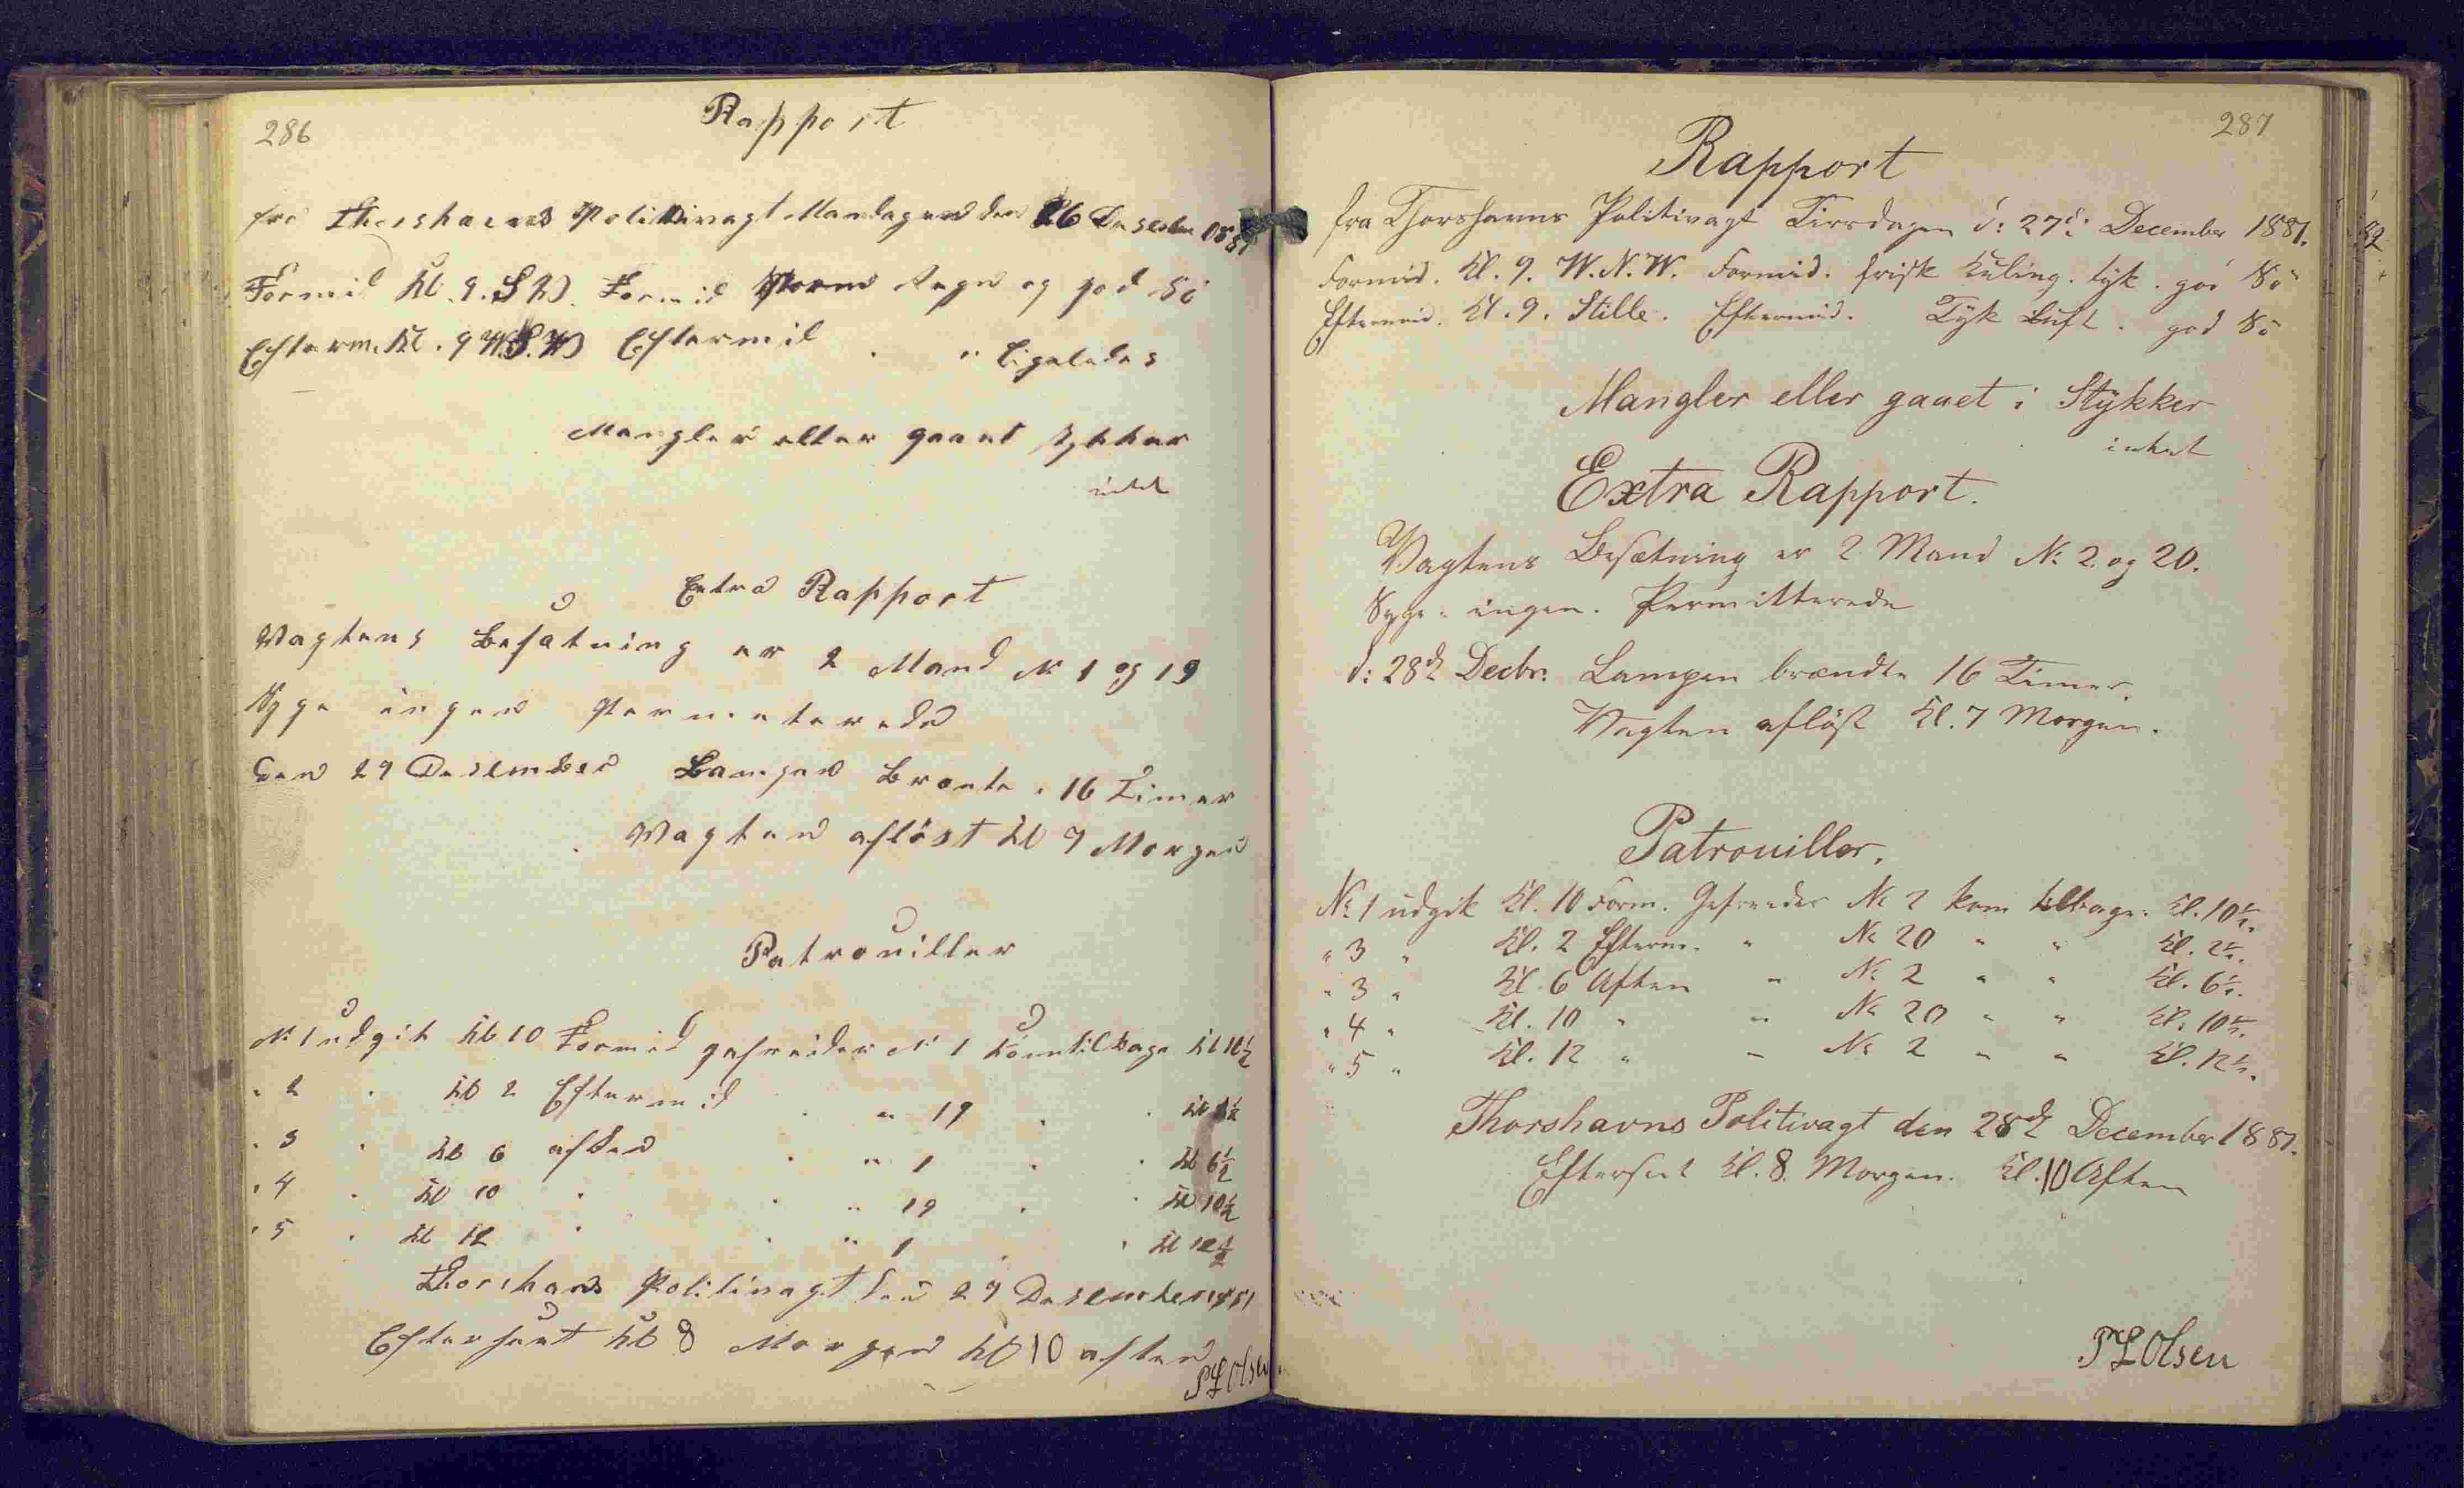 286
Rapport
fra Thorshavns Politivagt Mandagen den 26 Desember 1881
Formid Kl. 9. S W. Formid Storm Regn og god Sö
Efterm. Kl. 9 W.S.W Eftermid " Ligeledes
Mangler eller gaaet stykker
intet
Extra Rapport
Vagtens Besätning er 2 Mand No 1 og 19
Syge ingen Permiterede
Den 27 Desember Lampen Brænte 16 Timer
Vagten aflöst Kl 7 Morgen
Patrouiller
No 1 udgik Kl 10 Formid gefreider No 1 kom tilbage Kl 10½
" 2 " Kl 2 Eftermid " " 19 " " Kl 2½
" 3 " Kl 6 aften " " 1 " " Kl 6½
" 4 " Kl 10 " " " 19 " " Kl 10½
" 5 " Kl 12 " " " 1 " " Kl 12½
Thorshavns Politivagt den 27 Desember 1881
Efterseet Kl 8 Morgen Kl 10 aften
P L Olsen
287
Rapport
fra Thorshavns Politivagt Tirsdagen d: 27d. December 1881.
Formid. Kl. 9. W.N.W. Formid. frisk Kuling. tyk. god Sö
Eftermid. Kl. 9. Stille. Eftermid. Tyk Luft. god Sö
Mangler eller gaaet i Stykker
intet
Extra Rapport.
Vagtens Besætning er 2 Mand No 2 og 20.
Syge: ingen. Permitterede
d: 28d Decbr. Lampen brændte 16 Timer.
Vagten aflöst Kl. 7 Morgen.
Patrouiller.
No 1 udgik Kl. 10 Form. Gefreider No 2 kom tilbage: Kl. 10½.
" 3 " Kl. 2 Efterm. " No 20 " " Kl. 2½.
" 3 " Kl. 6 Aften " No 2 " " Kl. 6½.
" 4 " Kl. 10 " " No 20 " " Kl. 10½.
" 5 " Kl. 12 " " No 2 " " Kl. 12½.
Thorshavns Politivagt den 28d December 1881.
Efterseet Kl. 8. Morgen. Kl. 10 Aften
P L Olsen